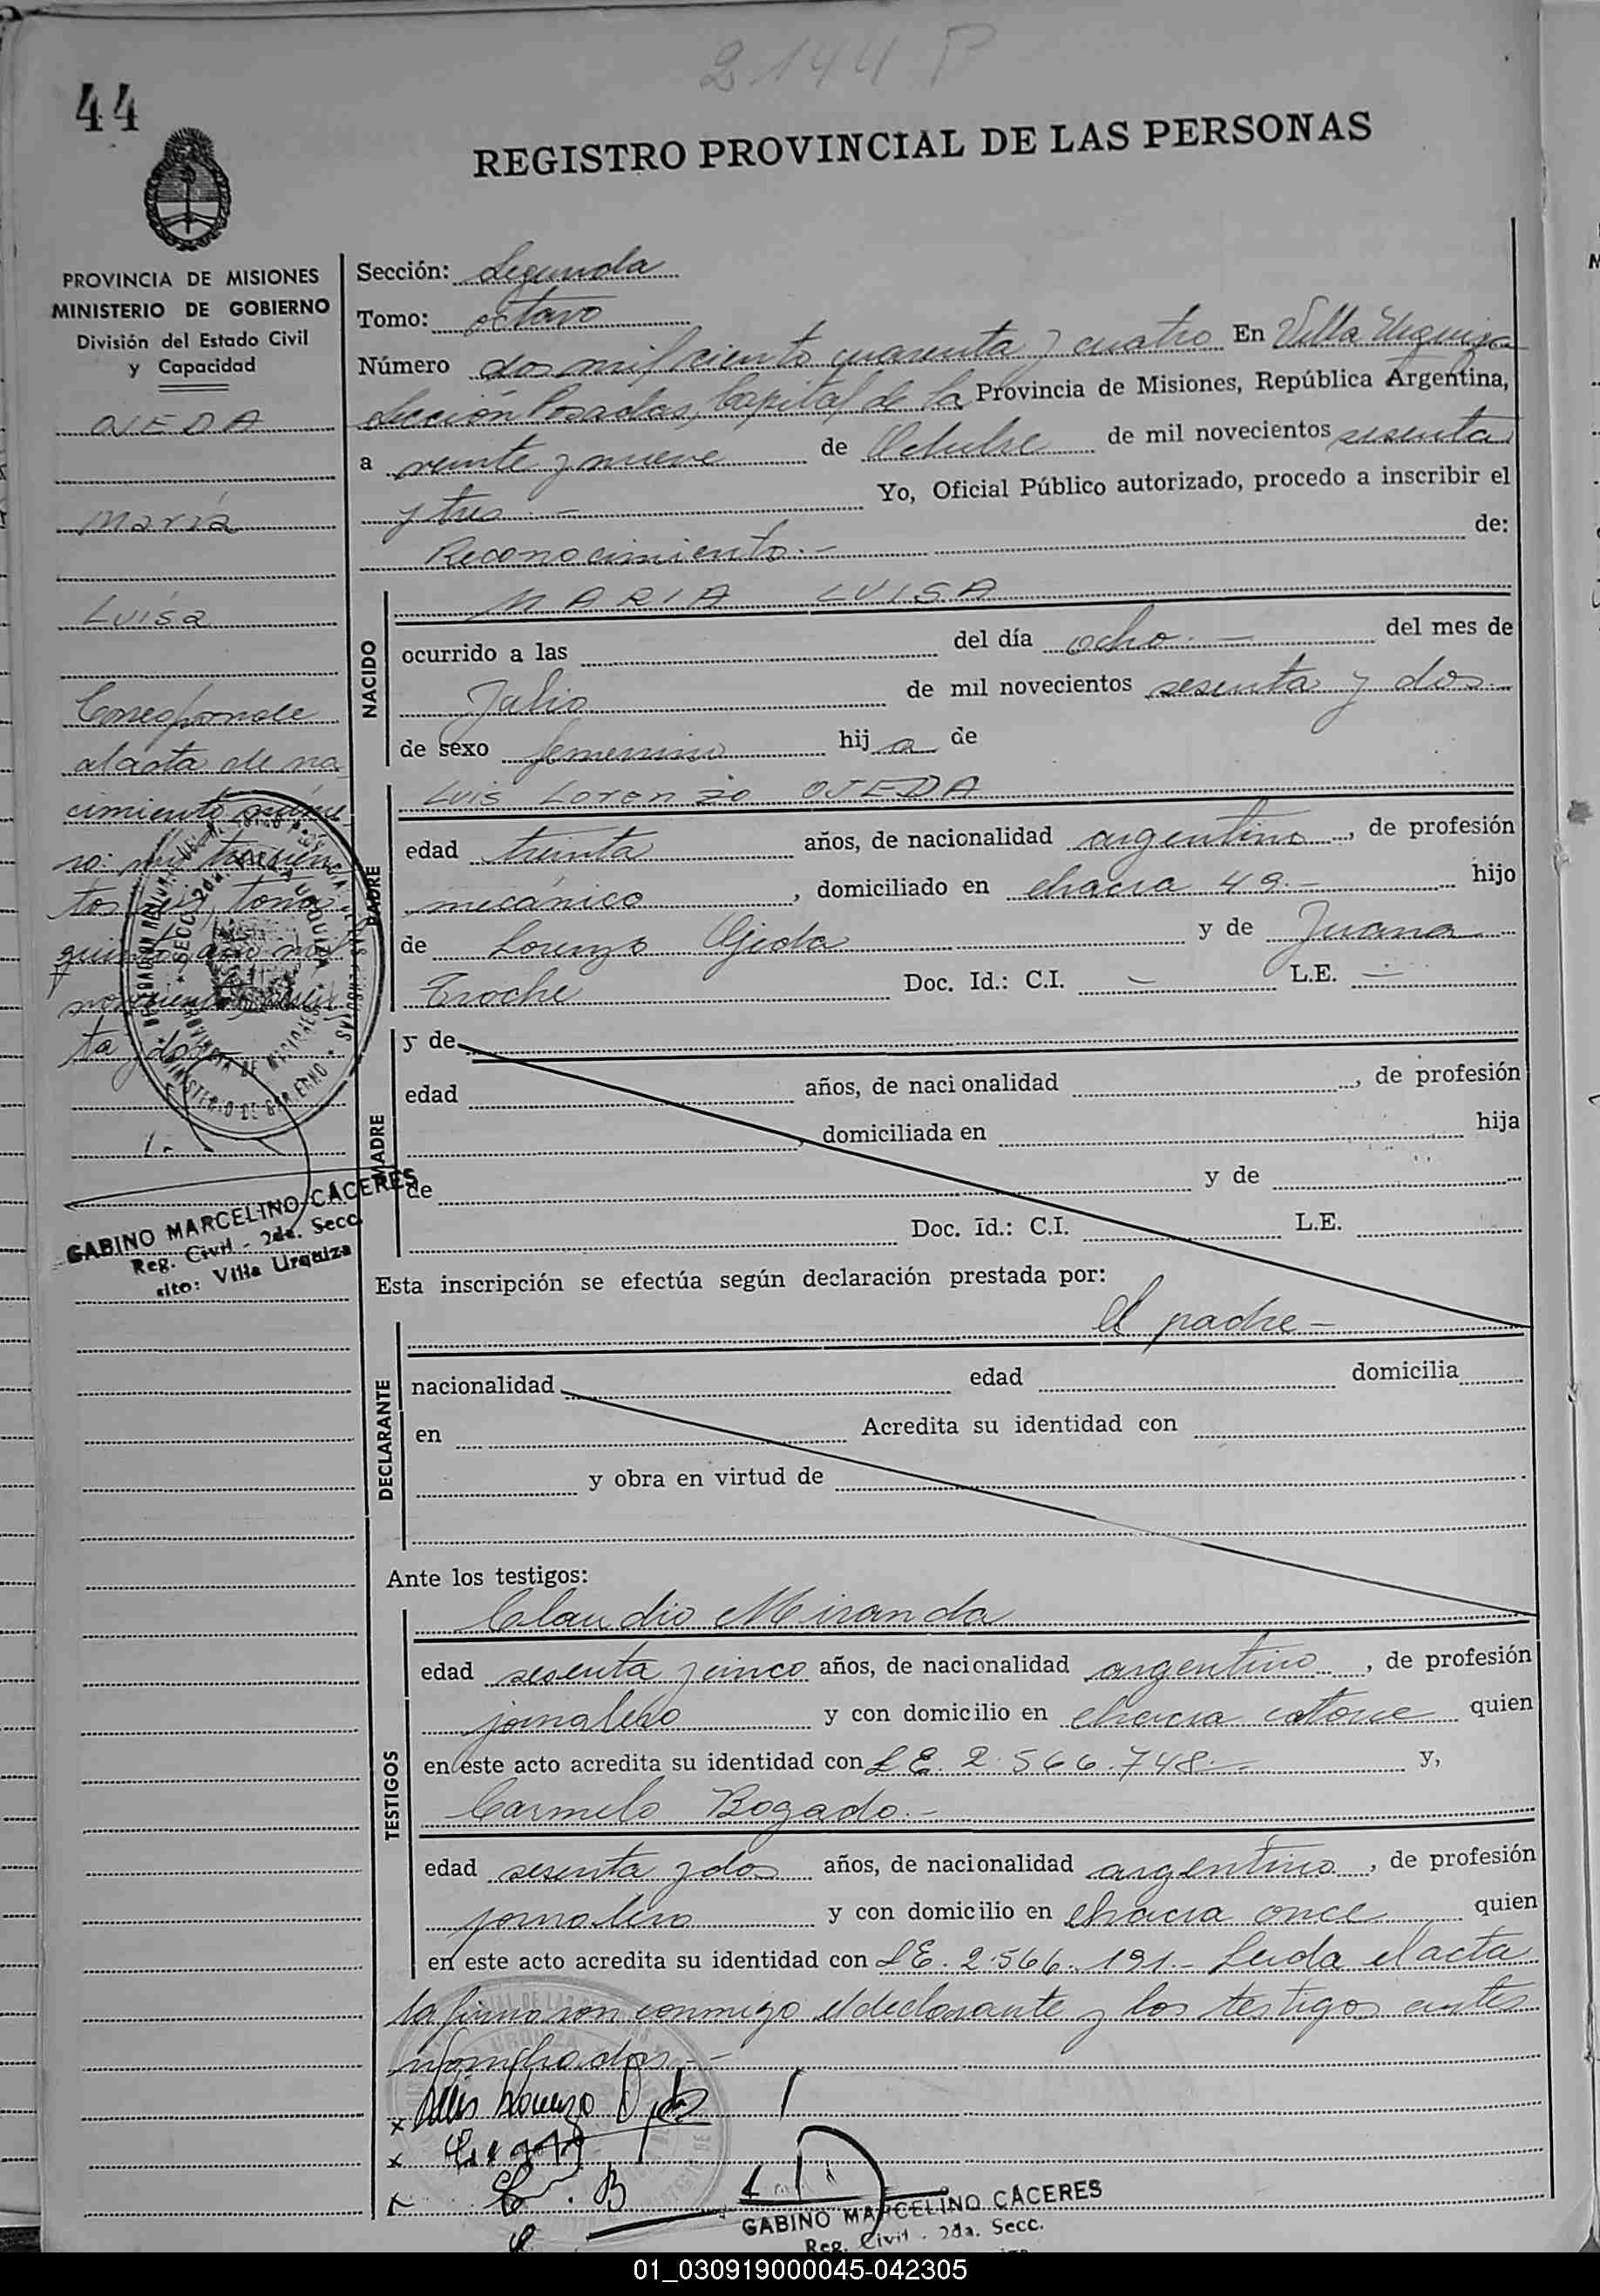 2144 P
44
REGISTRO PROVINCIAL DE LAS PERSONAS
PROVINCIA DE MISIONES
MINISTERIO DE GOBIERNO
División del Estado Civil
y Capacidad
OJEDA
María
Luisa
Corresponde
al acta de na
cimiento núme
ro: mil trescien
tos tomo
quinto año mil
novecientos sesen
ta y dos
1.-
GABINO MARCELINO CÁCERES
Reg. Civil - 2da. Secc.
sito: Villa Urquiza
Sección: Segunda
Tomo: octavo
Número dos mil ciento cuarenta y cuatro En Villa Urquiza
Sección Posadas, Capital de la Provincia de Misiones, República Argentina,
a veinte y nueve de Octubre de mil novecientos sesenta
y tres.- Yo, Oficial Público autorizado, procedo a inscribir el
Reconocimiento.- de:
NACIDO
MARIA LUISA
ocurrido a las del día ocho.- del mes de
Julio de mil novecientos sesenta y dos.-
de sexo femenino hija de
PADRE
Luis Lorenzo OJEDA
edad treinta años, de nacionalidad argentino, de profesión
mecánico, domiciliado en chacra 49.- hijo
de Lorenzo Ojeda y de Juana
Troche Doc. Id.: C.I. - L.E. -
MADRE
y de
edad años, de nacionalidad , de profesión
, domiciliada en hija
de y de
Doc. Id.: C.I. L.E.
Esta inscripción se efectúa según declaración prestada por:
el padre-
DECLARANTE
nacionalidad edad domicilia
en Acredita su identidad con
y obra en virtud de
Ante los testigos:
TESTIGOS
Claudio Miranda
edad sesenta y cinco años, de nacionalidad argentino, de profesión
jornalero y con domicilio en chacra catorce quien
en este acto acredita su identidad con L.E. 2.566.748.- y,
Carmelo Bogado.-
edad sesenta y dos años, de nacionalidad argentino, de profesión
jornalero y con domicilio en chacra once quien
en este acto acredita su identidad con L.E. 2.566.191.- Leida el acta
la firmaron conmigo el declarante y los testigos antes
nombrados.-
x Luis Lorenzo Ojeda
x
x B
GABINO MARCELINO CÁCERES
Reg. Civil - 2da. Secc.
01_030919000045-042305